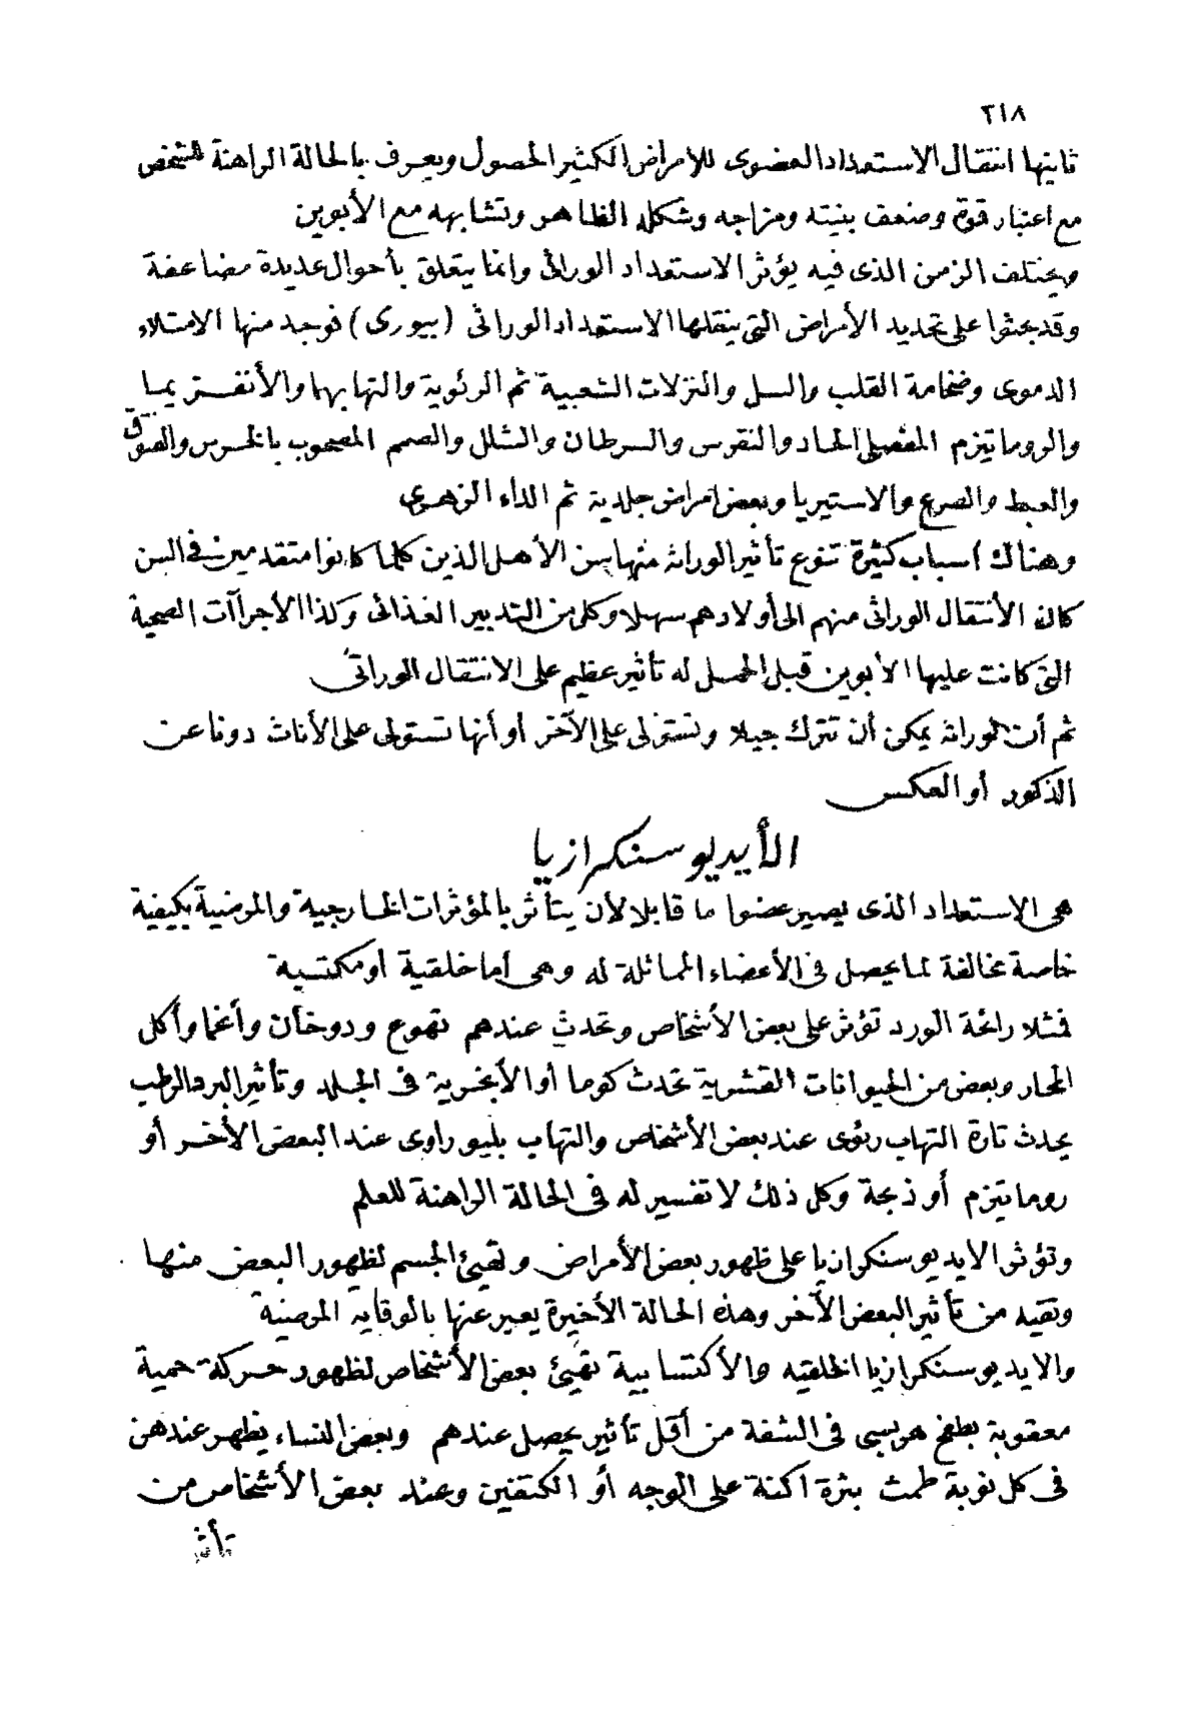 ٢١٨
ثانيها انتقال الاستعداد العضوى للامراض الكثير الحصول ويعرف بالحالة الراهنة للشخص
مع اعتبار قوة وضعف بنيته ومزاجه وشكله الظاهر وتشابهه مع الأبوين
ويختلف الزمن الذى فيه يؤثر الاستعداد الوراثى وانما يتعلق بأحوال عديدة مضاعفة
وقد بحثوا على تحديد الأمراض التى ينقلها الاستعداد الوراثى (بيورى) فوجد منها الامتلاء
الدموى وضخامة القلب والسل والنزلات الشعبية ثم الرئوية والتهابها والأنفستريما
والروماتيزم المفصلى الحاد والنقرس والسرطان والشلل والصمم المصحوب بالخرس والفتق
والعبط والصرع والاستيريا وبعض امراض جلدية ثم الداء الزهرى
وهناك أسباب كثيرة تنوع تأثير الوراثة منها سن الأهل الذين كلما كانوا متقدمين فى السن
كان الأنتقال الوراثى منهم الى أولادهم سهلا وكل من التدبير الغذائى وكذا الأجراآت الصحية
التى كانت عليها الأبوين قبل الحمل له تأثير عظيم على الانتقال الوراثى
ثم أن الوراثة يمكن أن تترك جيلا وتستولى على الآخر أو أنها تستولى على الأناث دونا عن
الذكور أو العكس
الأيديوسنكرازيا
هى الاستعداد الذى يصير عضوا ما قابلا لأن يتأثر بالمؤثرات الخارجية والمرضية بكيفية
خاصة مخالفة لما يحصل فى الأعضاء المماثلة له وهى أما خلقية أو مكتسبة
فمثلا رائحة الورد تؤثر على بعض الأشخاص وتحدث عندهم تهوع ودوخان وأغما وأكل
المحار وبعض من الحيوانات القشرية تحدث كوما أو الأنجرية فى الجلد وتأثير البرد الرطب
يحدث تارة التهاب رئوى عند بعض الأشخاص والتهاب بليوراوى عند البعض الأخر أو
روماتيزم أو ذبحة وكل ذلك لا تفسير له فى الحالة الراهنة للعلم
وتؤثر الايديوسنكرازيا على ظهور بعض الأمراض وتهيئ الجسم لظهور البعض منها
وتقيه من تأثير البعض الآخر وهذه الحالة الأخيرة يعبر عنها بالوقاية المرضية
والايديوسنكرازيا الخلقيه والأكتسابية تهيئ بعض الأشخاص لظهور حركة حمية
معقوبة بطفح هربسى فى الشفة من أقل تأثير يحصل عندهم وبعض النساء يظهر عندهن
فى كل نوبة طمث بثرة آكنة على الوجه أو الكتفين وعند بعض الأشخاص من
تأثير